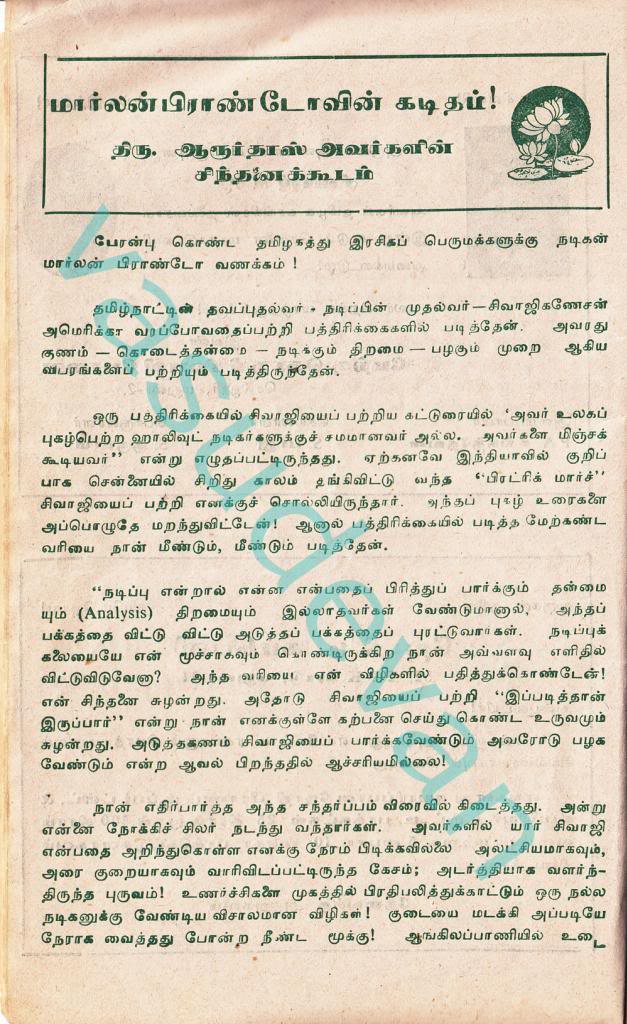 மார்லன் பிராண்டோவின் கடிதம்!
திரு. ஆரூர்தாஸ் அவர்களின்
சிந்தனைக்கூடம்
பேரன்பு கொண்ட தமிழகத்து இரசிகப் பெருமக்களுக்கு நடிகன்
மார்லன் பிராண்டோ வணக்கம் !
தமிழ்நாட்டின் தவப்புதல்வர் - நடிப்பின் முதல்வர் — சிவாஜிகணேசன்
அமெரிக்கா வரப்போவதைப்பற்றி பத்திரிக்கைகளில் படித்தேன். அவரது
குணம் — கொடைத்தன்மை — நடிக்கும் திறமை — பழகும் முறை ஆகிய
விபரங்களைப் பற்றியும் படித்திருந்தேன்.
ஒரு பத்திரிக்கையில் சிவாஜியைப் பற்றிய கட்டுரையில் ‘அவர் உலகப்
புகழ்பெற்ற ஹாலிவுட் நடிகர்களுக்குச் சமமானவர் அல்ல. அவர்களை மிஞ்சக்
கூடியவர்” என்று எழுதப்பட்டிருந்தது. ஏற்கனவே இந்தியாவில் குறிப்
பாக சென்னையில் சிறிது காலம் தங்கிவிட்டு வந்த “பிரட்ரிக் மார்ச்”
சிவாஜியைப் பற்றி எனக்குச் சொல்லியிருந்தார். அந்தப் புகழ் உரைகளை
அப்பொழுதே மறந்துவிட்டேன்! ஆனால் பத்திரிக்கையில் படித்த மேற்கண்ட
வரியை நான் மீண்டும், மீண்டும் படித்தேன்.
“நடிப்பு என்றால் என்ன என்பதைப் பிரித்துப் பார்க்கும் தன்மை
யும் (Analysis) திறமையும் இல்லாதவர்கள் வேண்டுமானால், அந்தப்
பக்கத்தை விட்டு விட்டு அடுத்தப் பக்கத்தைப் புரட்டுவார்கள். நடிப்புக்
கலையையே என் மூச்சாகவும் கொண்டிருக்கிற நான் அவ்வளவு எளிதில்
விட்டுவிடுவேனா? அந்த வரியை என் விழிகளில் பதித்துக்கொண்டேன்!
என் சிந்தனை சுழன்றது. அதோடு சிவாஜியைப் பற்றி “இப்படித்தான்
இருப்பார்” என்று நான் எனக்குள்ளே கற்பனை செய்து கொண்ட உருவமும்
சுழன்றது. அடுத்தகணம் சிவாஜியைப் பார்க்கவேண்டும் அவரோடு பழக
வேண்டும் என்ற ஆவல் பிறந்ததில் ஆச்சரியமில்லை!
நான் எதிர்பார்த்த அந்த சந்தர்ப்பம் விரைவில் கிடைத்தது. அன்று
என்னை நோக்கிச் சிலர் நடந்து வந்தார்கள். அவர்களில் யார் சிவாஜி
என்பதை அறிந்துகொள்ள எனக்கு நேரம் பிடிக்கவில்லை அலட்சியமாகவும்,
அரை குறையாகவும் வாரிவிடப்பட்டிருந்த கேசம்; அடர்த்தியாக வளர்ந்-
திருந்த புருவம்! உணர்ச்சிகளை முகத்தில் பிரதிபலித்துக்காட்டும் ஒரு நல்ல
நடிகனுக்கு வேண்டிய விசாலமான விழிகள்! குடையை மடக்கி அப்படியே
நேராக வைத்தது போன்ற நீண்ட மூக்கு! ஆங்கிலப்பாணியில் உடை
vasudevan